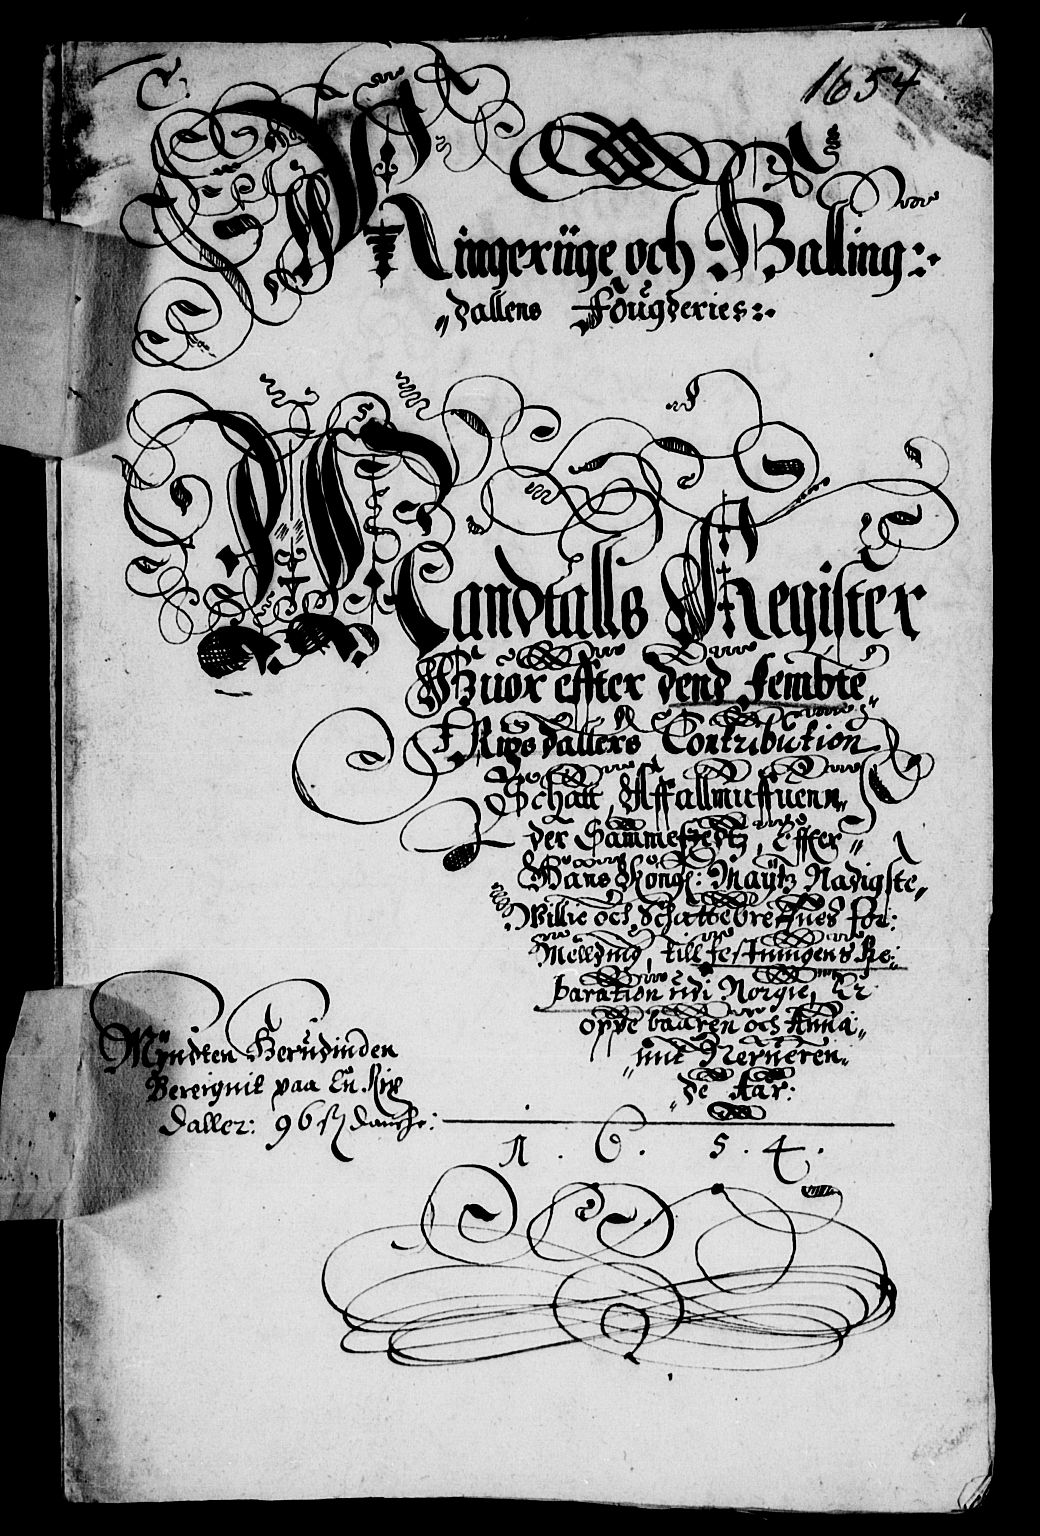 C.
1654
Ringeriige och Halling:
dallens Fougderies:
Mandtalls Register
Huor effter dend fembte
Rigsdallers Contribution
Schatt, Aff allmuffuenn
der Sammestedtz, Effter
Hans Kongl: Maÿtz Nadigste
Willie och Schattebreffues for:
Melding, till festningens Re:
paration udi Norgie, Er
oppebaaren och Anna:
mit Nerueren
de Aar:
Mÿndten Herudinden
Bereignit paa En Rix
daller: 96 ſz danche:
1. 6. 5. 4.